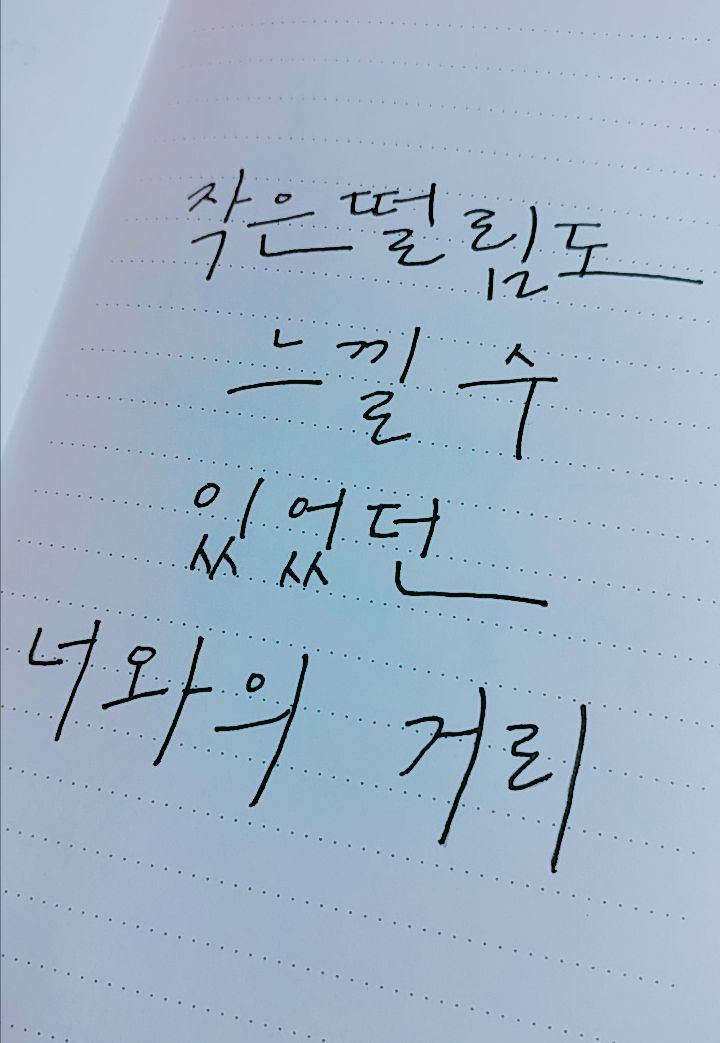 작은 떨림도
느낄 수
있었던
너와의 거리